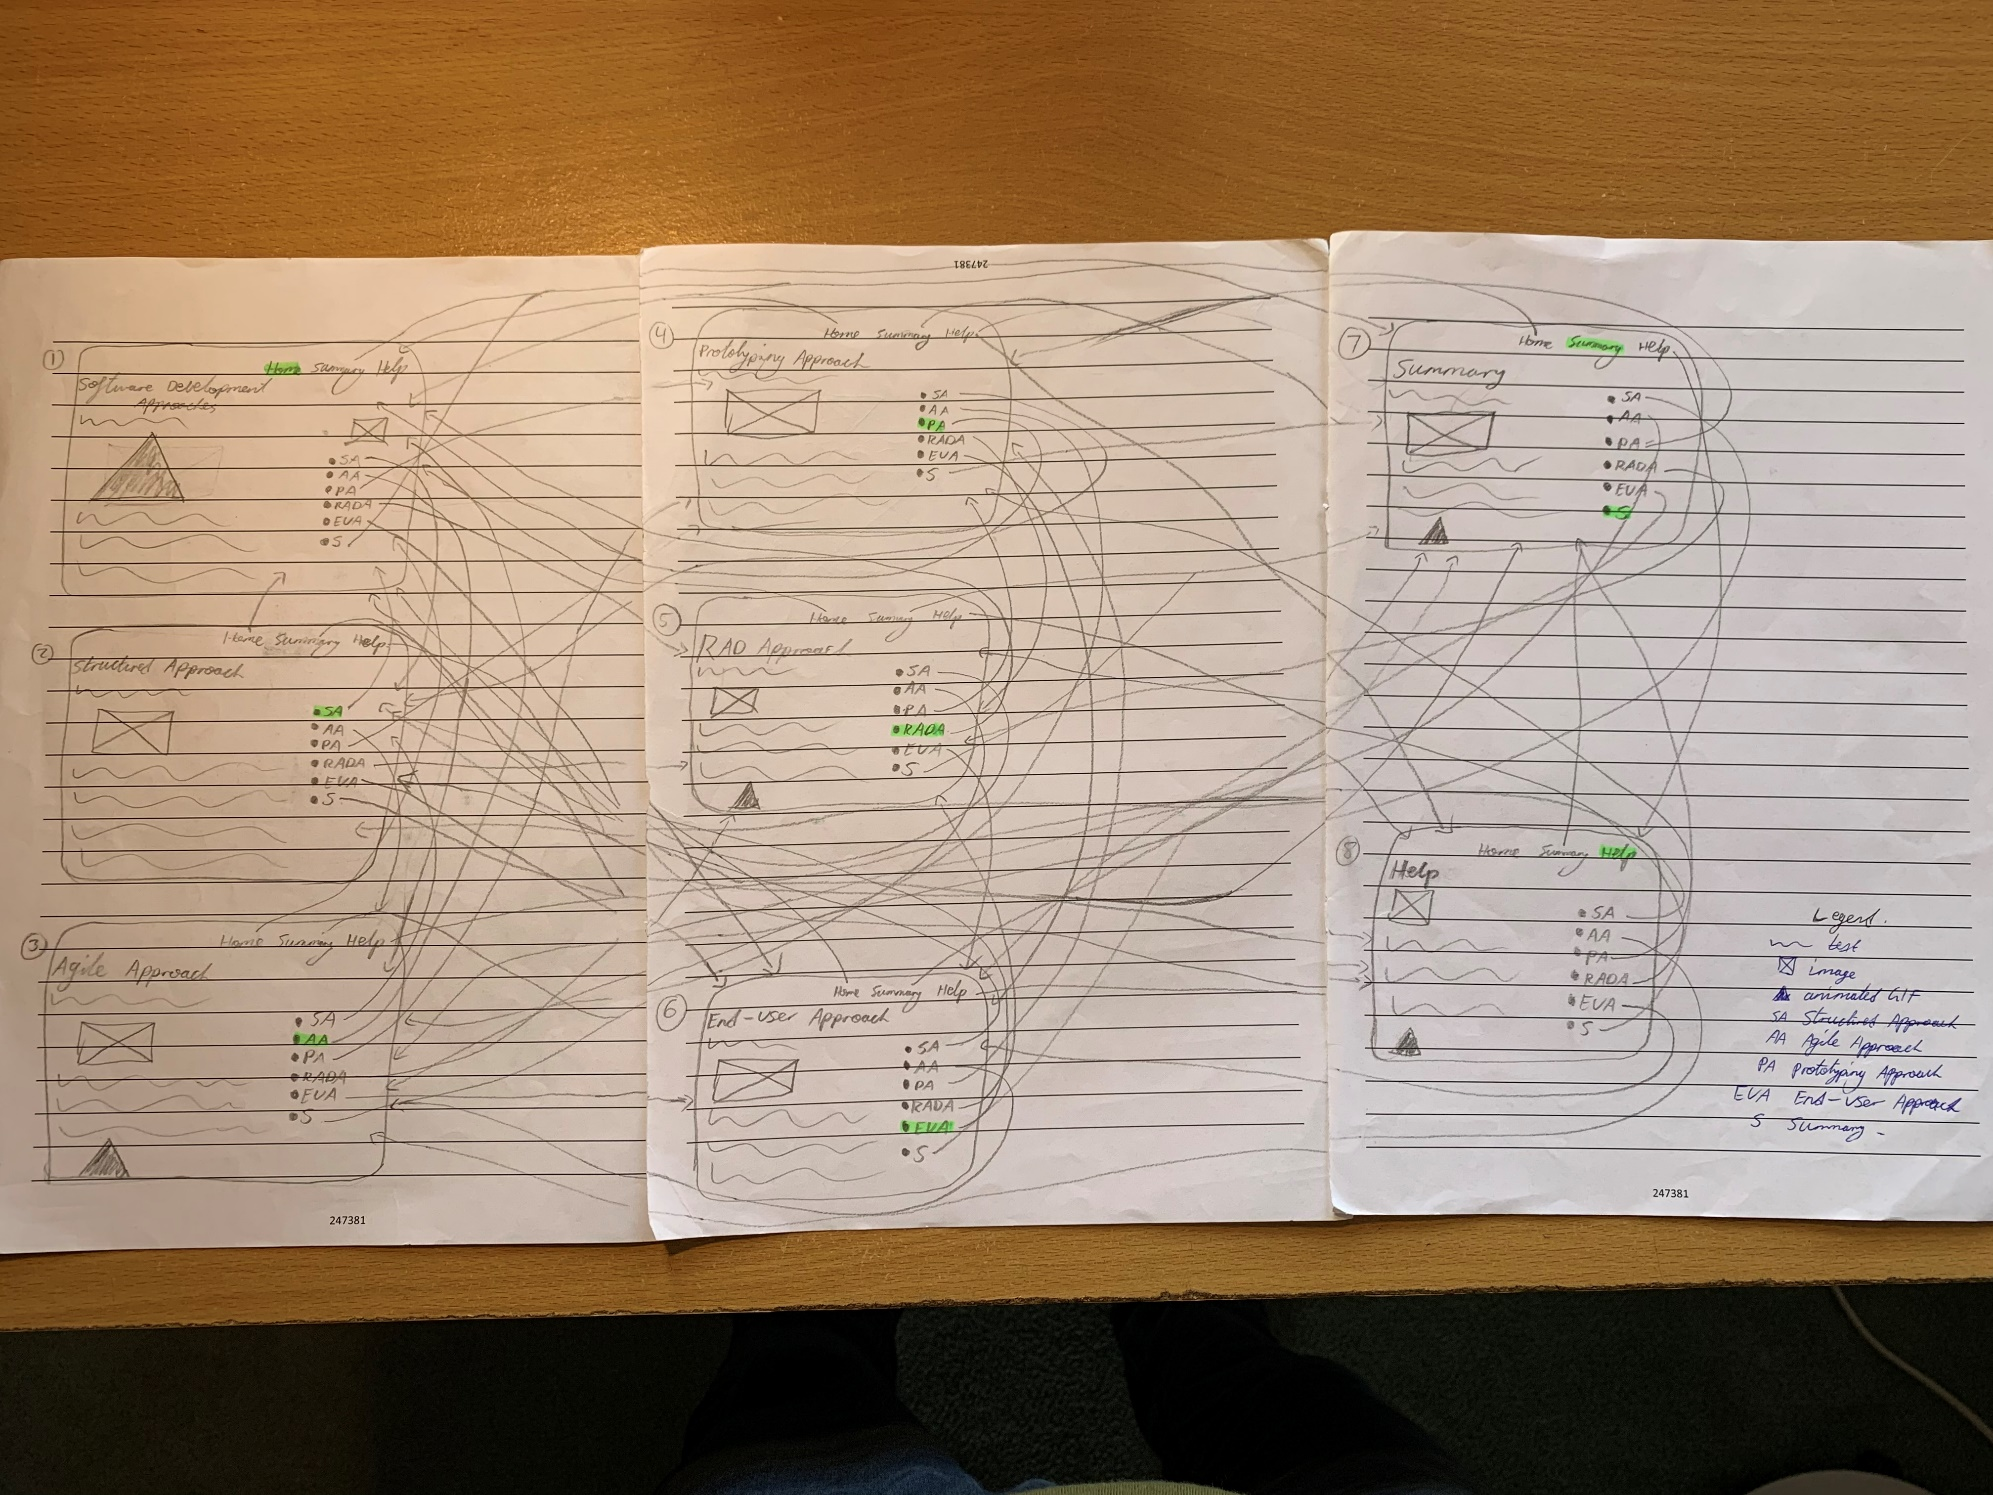 247381
1
Home Summary Help
Software Development
Approaches
SA
AA
PA
RADA
EUA
S
2
Home Summary Help
Structured Approach
SA
AA
PA
RADA
EUA
S
3
Home Summary Help
Agile Approach
SA
AA
PA
RADA
EUA
S
247381
4
Home Summary Help
Prototyping Approach
SA
AA
PA
RADA
EUA
S
5
Home Summary Help
RAD Approach
SA
AA
PA
RADA
EUA
S
6
Home Summary Help
End-User Approach
SA
AA
PA
RADA
EUA
S
7
Home Summary Help
Summary
SA
AA
PA
RADA
EUA
S
8
Home Summary Help
Help
SA
AA
PA
RADA
EUA
S
Legend.
text
image
animated GIF
SA Structured Approach
AA Agile Approach
PA Prototyping Approach
EUA End-User Approach
S Summary
247381